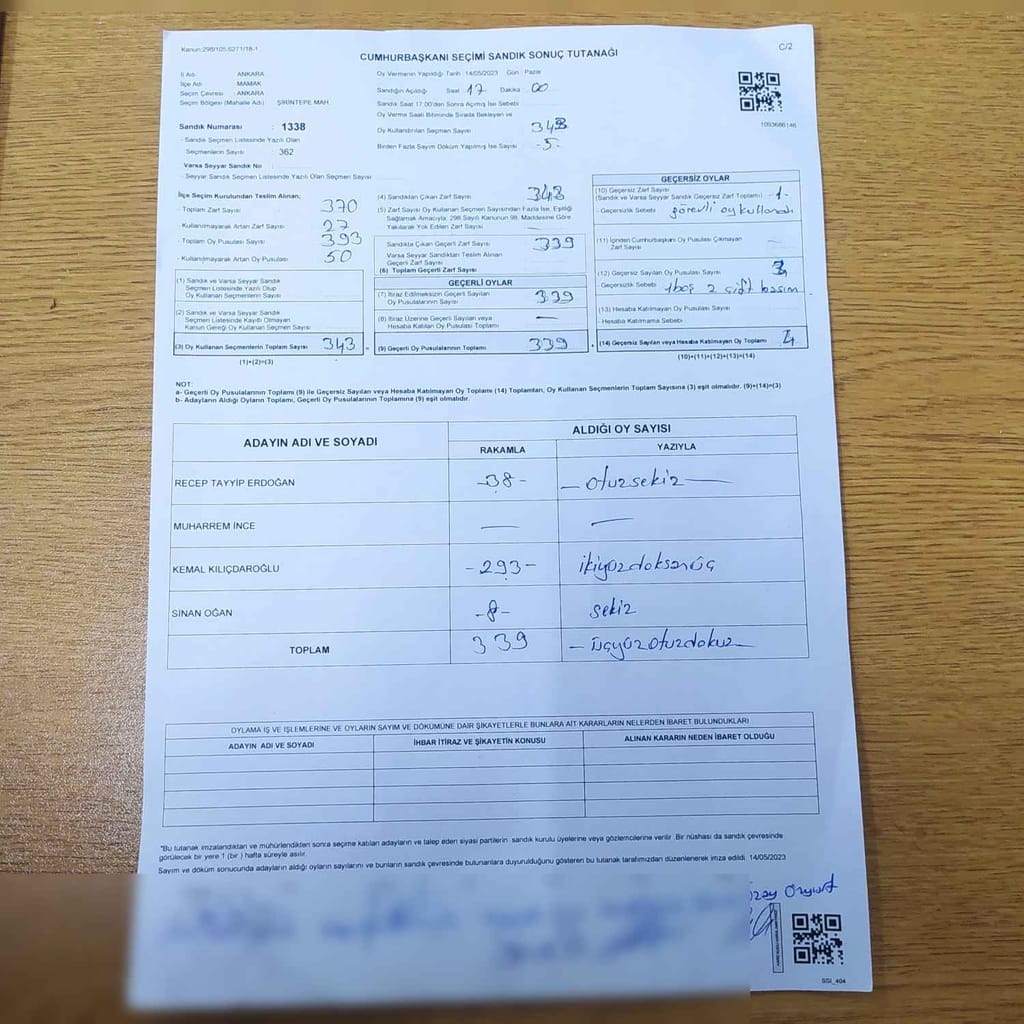 Kanun:298/105,6271/18-1
C/2
CUMHURBAŞKANI SEÇİMİ SANDIK SONUÇ TUTANAĞI
İl Adı : ANKARA
İlçe Adı : MAMAK
Seçim Çevresi : ANKARA
Seçim Bölgesi (Mahalle Adı) : ŞİRİNTEPE MAH.
Sandık Numarası : 1338
- Sandık Seçmen Listesinde Yazılı Olan
Seçmenlerin Sayısı : 362
Varsa Seyyar Sandık No :
- Seyyar Sandık Seçmen Listesinde Yazılı Olan Seçmen Sayısı
Oy Vermenin Yapıldığı Tarih : 14/05/2023 Gün : Pazar
Sandığın Açıldığı Saat 17 Dakika 00
Sandık Saat 17:00'den Sonra Açılmış İse Sebebi
Oy Verme Saati Bitiminde Sırada Bekleyen ve
Oy Kullandırılan Seçmen Sayısı 343
Birden Fazla Sayım Döküm Yapılmış İse Sayısı -5-
1093686146
İlçe Seçim Kurulundan Teslim Alınan;
- Toplam Zarf Sayısı 370
- Kullanılmayarak Artan Zarf Sayısı 27
- Toplam Oy Pusulası Sayısı 393
- Kullanılmayarak Artan Oy Pusulası 50
(1) Sandık ve Varsa Seyyar Sandık
Seçmen Listesinde Yazılı Olup
Oy Kullanan Seçmenlerin Sayısı
(2) Sandık ve Varsa Seyyar Sandık
Seçmen Listesinde Kayıtlı Olmayan
Kanun Gereği Oy Kullanan Seçmen Sayısı
(3) Oy Kullanan Seçmenlerin Toplam Sayısı 343 =
(1)+(2)=(3)
(4) Sandıktan Çıkan Zarf Sayısı 343
(5) Zarf Sayısı Oy Kullanan Seçmen Sayısından Fazla İse, Eşitliği
Sağlamak Amacıyla; 298 Sayılı Kanunun 98. Maddesine Göre
Yakılarak Yok Edilen Zarf Sayısı —
Sandıkta Çıkan Geçerli Zarf Sayısı 339
Varsa Seyyar Sandıktan Teslim Alınan
Geçerli Zarf Sayısı
(6) Toplam Geçerli Zarf Sayısı
GEÇERLİ OYLAR
(7) İtiraz Edilmeksizin Geçerli Sayılan
Oy Pusulalarının Sayısı 339
(8) İtiraz Üzerine Geçerli Sayılan veya
Hesaba Katılan Oy Pusulası Toplamı —
(9) Geçerli Oy Pusulalarının Toplamı 339 +
GEÇERSİZ OYLAR
(10) Geçersiz Zarf Sayısı
(Sandık ve Varsa Seyyar Sandık Geçersiz Zarf Toplamı) -1-
- Geçersizlik Sebebi görevli oy kullandı
(11) İçinden Cumhurbaşkanı Oy Pusulası Çıkmayan
Zarf Sayısı —
(12) Geçersiz Sayılan Oy Pusulası Sayısı 3
- Geçersizlik Sebebi 1boş 2 çift basım
(13) Hesaba Katılmayan Oy Pusulası Sayısı
- Hesaba Katılmama Sebebi
(14) Geçersiz Sayılan veya Hesaba Katılmayan Oy Toplamı 4
(10)+(11)+(12)+(13)=(14)
NOT:
a- Geçerli Oy Pusulalarının Toplamı (9) ile Geçersiz Sayılan veya Hesaba Katılmayan Oy Toplamı (14) Toplamları, Oy Kullanan Seçmenlerin Toplam Sayısına (3) eşit olmalıdır. (9)+(14)=(3)
b- Adayların Aldığı Oyların Toplamı, Geçerli Oy Pusulalarının Toplamına (9) eşit olmalıdır.
ADAYIN ADI VE SOYADI
ALDIĞI OY SAYISI
RAKAMLA YAZIYLA
RECEP TAYYİP ERDOĞAN -38- — otuzsekiz —
MUHARREM İNCE — —
KEMAL KILIÇDAROĞLU -293- ikiyüzdoksanüç
SİNAN OĞAN -8- sekiz
TOPLAM 339 — üçyüzotuzdokuz —
OYLAMA İŞ VE İŞLEMLERİNE VE OYLARIN SAYIM VE DÖKÜMÜNE DAİR ŞİKAYETLERLE BUNLARA AİT KARARLARIN NELERDEN İBARET BULUNDUKLARI
ADAYIN ADI VE SOYADI İHBAR İTİRAZ VE ŞİKAYETİN KONUSU ALINAN KARARIN NEDEN İBARET OLDUĞU
"Bu tutanak imzalandıktan ve mühürlendikten sonra seçime katılan adayların ve talep eden siyasi partilerin sandık kurulu üyelerine veya gözlemcilerine verilir. Bir nüshası da sandık çevresinde
görülecek bir yere 1 (bir) hafta süreyle asılır.
Sayım ve döküm sonucunda adayların aldığı oyların sayılarını ve bunların sandık çevresinde bulunanlara duyurulduğunu gösteren bu tutanak tarafımızdan düzenlenerek imza edildi. 14/05/2023
SSI_404